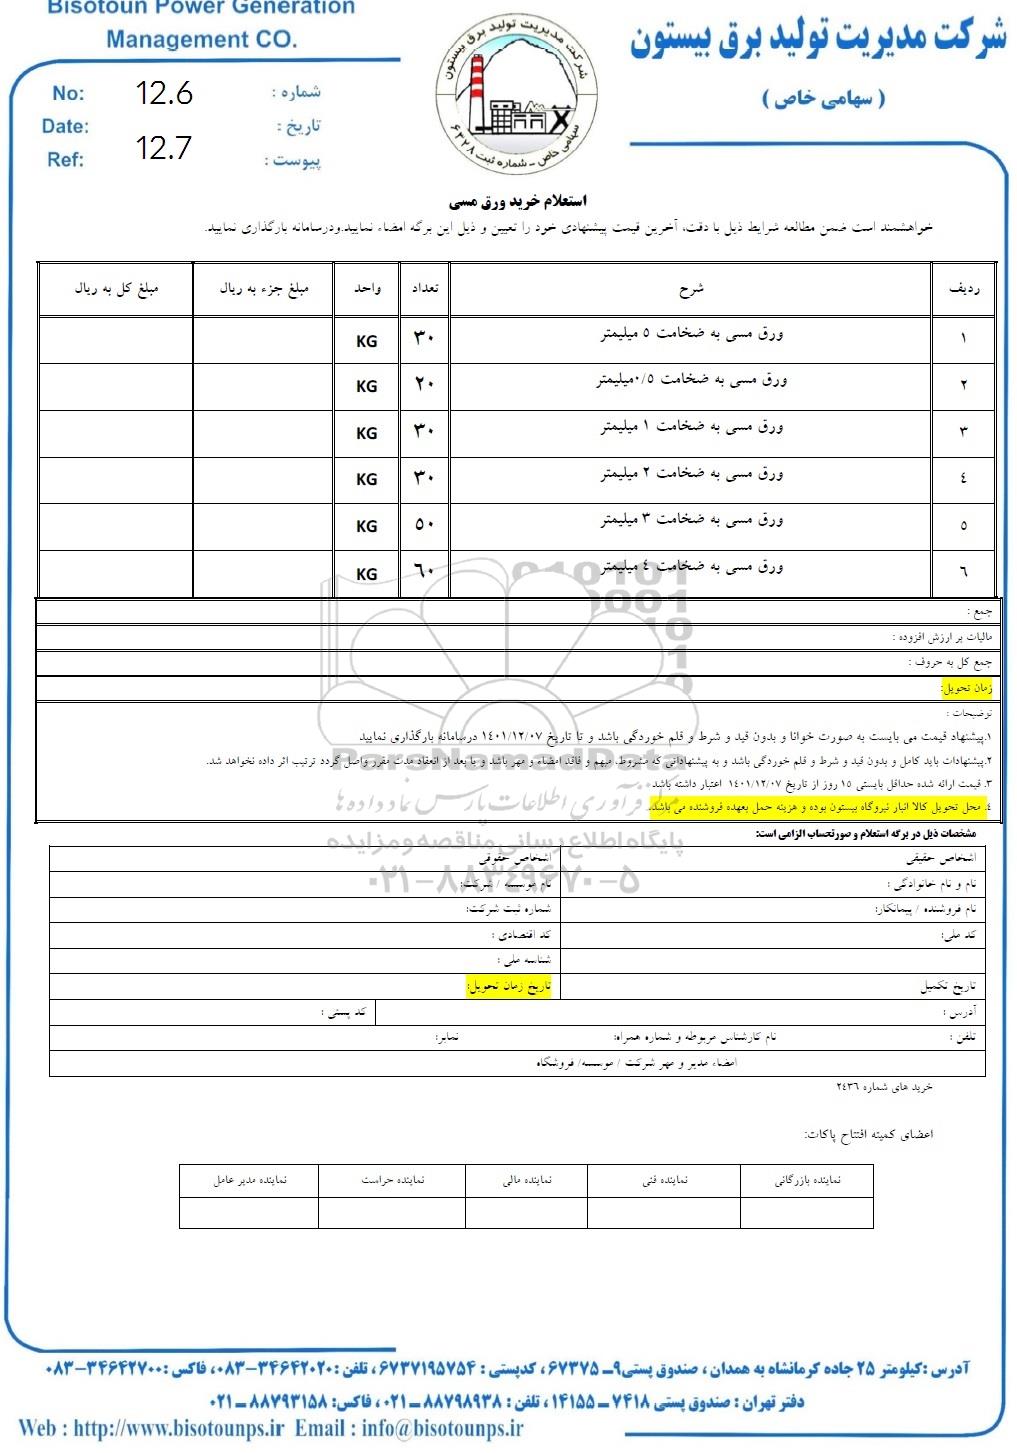 Bisotoun Power Generation
Management CO.
شرکت مدیریت تولید برق بیستون
( سهامی خاص )
شرکت مدیریت تولید برق بیستون
سهامی خاص - شماره ثبت ۶۳۲۸
No: 12.6 شماره :
Date: تاریخ :
Ref: 12.7 پیوست :
استعلام خرید ورق مسی
خواهشمند است ضمن مطالعه شرایط ذیل با دقت، آخرین قیمت پیشنهادی خود را تعیین و ذیل این برگه امضاء نمایید.ودرسامانه بارگذاری نمایید.
ردیف شرح تعداد واحد مبلغ جزء به ریال مبلغ کل به ریال
۱ ورق مسی به ضخامت ۵ میلیمتر ۳۰ KG
۲ ورق مسی به ضخامت ۰/۵میلیمتر ۲۰ KG
۳ ورق مسی به ضخامت ۱ میلیمتر ۳۰ KG
٤ ورق مسی به ضخامت ۲ میلیمتر ۳۰ KG
۵ ورق مسی به ضخامت ۳ میلیمتر ۵۰ KG
٦ ورق مسی به ضخامت ٤ میلیمتر ٦۰ KG
جمع :
مالیات بر ارزش افزوده :
جمع کل به حروف :
زمان تحویل:
توضیحات :
۱.پیشنهاد قیمت می بایست به صورت خوانا و بدون قید و شرط و قلم خوردگی باشد و تا تاریخ ۱٤۰۱/۱۲/۰۷ درسامانه بارگذاری نمایید
۲.پیشنهادات باید کامل و بدون قید و شرط و قلم خوردگی باشد و به پیشنهاداتی که مشروط، مبهم و فاقد امضاء و مهر باشد و یا بعد از انعقاد مدت مقرر واصل گردد ترتیب اثر داده نخواهد شد.
۳. قیمت ارائه شده حداقل بایستی ۱۵ روز از تاریخ ۱٤۰۱/۱۲/۰۷ اعتبار داشته باشد
٤. محل تحویل کالا انبار نیروگاه بیستون بوده و هزینه حمل بعهده فروشنده می باشد.
ParsNamadData
مرکز فرآوری اطلاعات پارس نماد داده ها
پایگاه اطلاع رسانی مناقصه و مزایده
۰۲۱-۸۸۳۴۹۶۷۰-۵
مشخصات ذیل در برگه استعلام و صورتحساب الزامی است:
اشخاص حقیقی اشخاص حقوقی
نام و نام خانوادگی : نام موسسه / شرکت:
نام فروشنده / پیمانکار: شماره ثبت شرکت:
کد ملی: کد اقتصادی :
شناسه ملی :
تاریخ تکمیل تاریخ زمان تحویل:
آدرس : کد پستی :
تلفن : نام کارشناس مربوطه و شماره همراه: نمابر:
امضاء مدیر و مهر شرکت / موسسه/ فروشگاه
خرید های شماره ۲٤۳٦
اعضای کمیته افتتاح پاکات:
نماینده بازرگانی نماینده فنی نماینده مالی نماینده حراست نماینده مدیر عامل
آدرس :کیلومتر ۲۵ جاده کرمانشاه به همدان ، صندوق پستی۹ـ ۶۷۳۷۵ ، کدپستی : ۶۷۳۷۱۹۵۷۵۴ ، تلفن :۳۴۶۴۲۰۲۰-۰۸۳، فاکس :۳۴۶۴۲۷۰۰-۰۸۳
دفتر تهران : صندوق پستی ۷۴۱۸ ــ ۱۴۱۵۵ ، تلفن : ۸۸۷۹۸۹۳۸ــ۰۲۱ ، فاکس: ۸۸۷۹۳۱۵۸ــ۰۲۱
Web : http://www.bisotounps.ir Email : info@bisotounps.ir